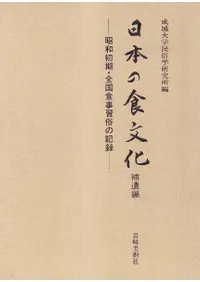 成城大学民俗学研究所編
日本の食文化
補遺編
―昭和初期・全国食事習俗の記録―
岩崎美術社